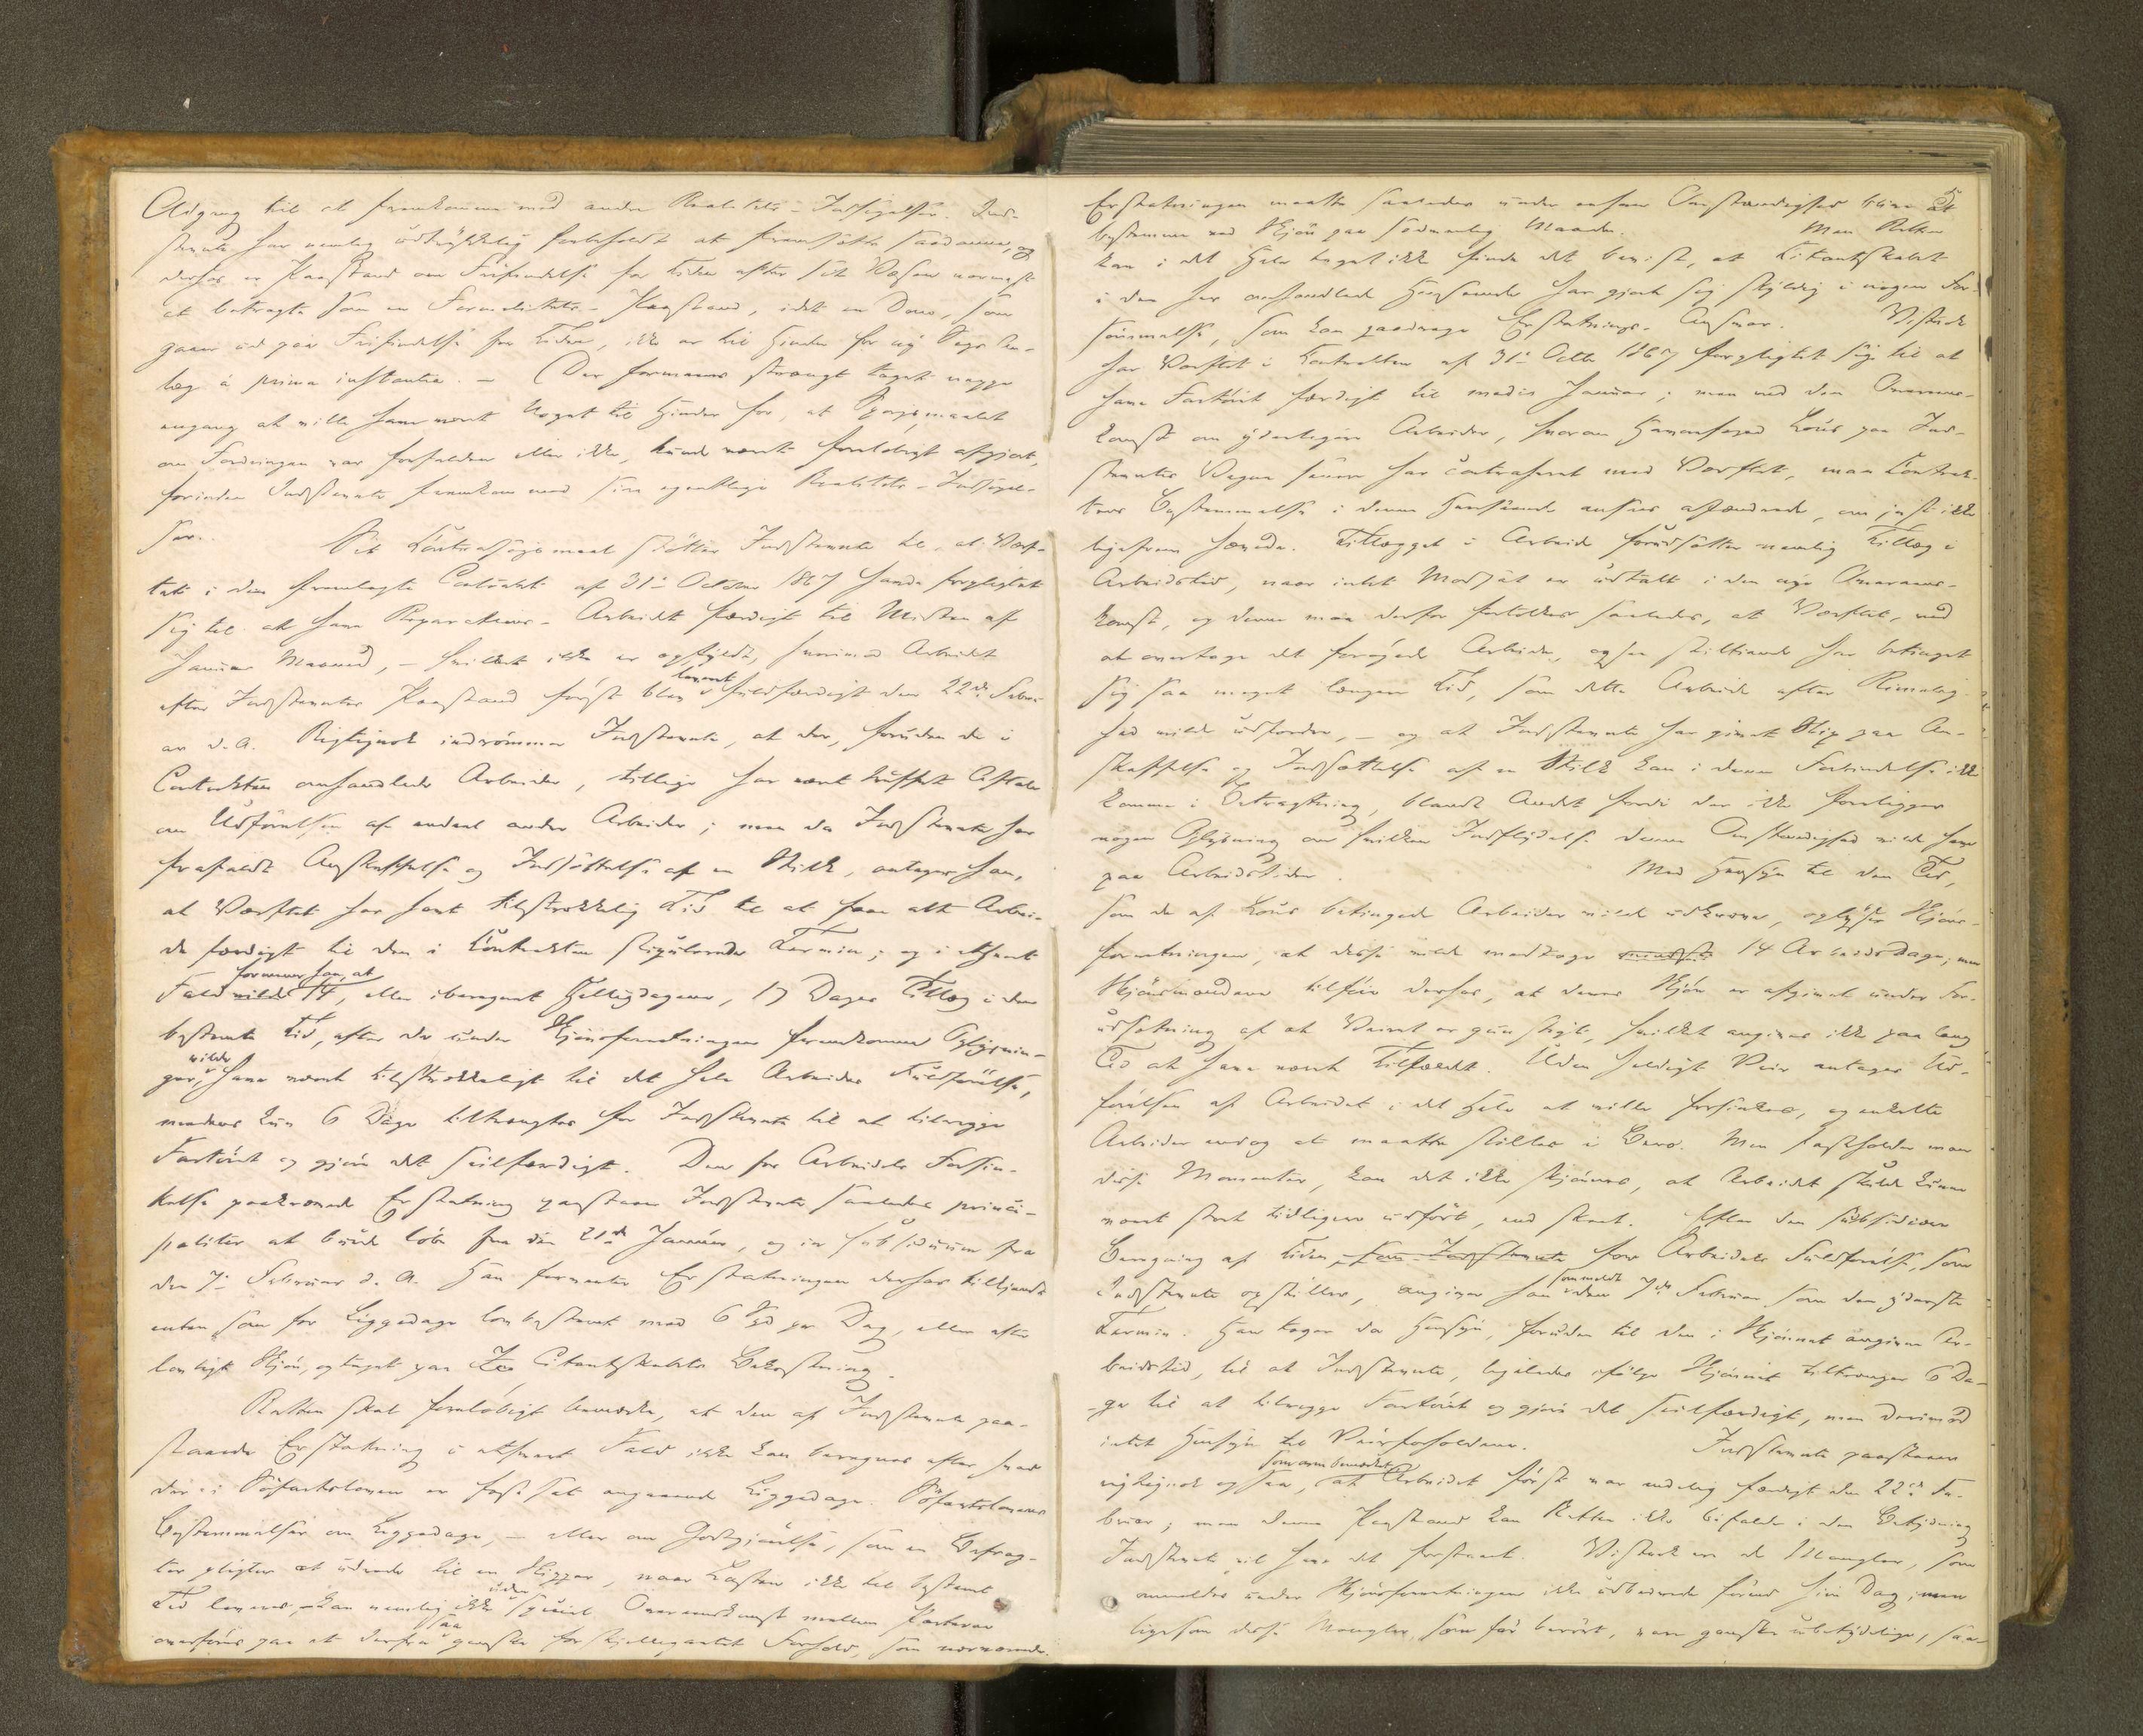 Adgang til at fremkomme med andre Realitets-Indsigelser. Ind-
stevnte har nemlig udtrykkelig forbeholdt at fremsætte saadanne, og
derfor er Paastand om Frifindelse for Tiden efter sit Væsen nærmest
at betragte som en Formalitets-Paastand, idet en Dom, som
gaaer ud paa Frifindelse for Tiden, ikke er til Hinder for ny Sags An-
læg á prima instantia. – Der formenes strængt taget neppe
engang at ville have været Noget til Hinder for, at Spørgsmaalet
om Fordringen var forfalden eller ikke, kunde været foreløbigt afgjort,
forinden Indstevnte fremkom med sine egentlige Realitets-Indsigel-
ser.
Sit Contrasøgsmaal støtter Indstevnte til, at Værf-
tet i den fremlagte Contrakt af 31te October 1867 havde forpligtet
sig til at have Reparations-Arbeidet færdigt til Midten af
Januar Maaned, – hvilket ikke er opfyldt, hvorimod Arbeidet
efter Indstevntes Paastand først blev leveret fuldfærdigt den 22de Febru-
ar d.A. Rigtignok indrømmer Indstevnte, at der, foruden de i
Contrakten omhandlede Arbeider, tillige har været truffet Aftale
om Udførelsen af endeel andre Arbeider; men da Indstevnte har
frafaldt Anskaffelse og Indsættelse af en Stilk, antager han,
at Værftet har havt tilstrækkelig Tid til at faae alt Arbei-
de færdigt til den i Contrakten stipulerede Termin; og i ethvert
Fald formener han, at 14, eller iberegnet Helligdagene, 17 Dages Tillæg i den
bestemte Tid, efter de under Skjønsforretningen fremkomne Oplysnin-
ger, vilde have været tilstrækkeligt til det hele Arbeides Fuldførelse,
medens kun 6 Dage tiltrængtes for Indstevnte til at tilrigge
Fartøiet og gjøre det seilfærdigt. Den for Arbeidets Forsin-
kelse paakrævede Erstatning paastaaer Indstevnte saaledes princi-
paliter at burde løbe fra den 21de Januar, og in subsidium fra
den 7de Februar d. A. Han formener Erstatningen derfor tilkjendt
enten som for Liggedage lovbestemt med 6 Spd pr Dag, eller efter
lovligt Skjøn, optaget paa Citantskabets Bekostning.
Retten skal foreløbigt bemærke, at den af Indstevnte paa-
staaede Erstatning i ethvert Fald ikke kan beregnes efter hvad
der i Søfartsloven er fastsat angaaende Liggedage. Søfartslovens
Bestemmelser om Liggedage, – eller om Godtgjørelse, som en Befrag-
ter pligter at udrede til en Skipper, naar Lasten ikke til bestemt
Tid leveres, – kan nemlig ikke uden speciel Overeenskomst mellem Parterne
overføres paa et derfra saa ganske forskjelligartet Forhold, som nærværende.
5
Erstatningen maatte saaledes under enhver Omstændighed blive at
bestemme ved Skjøn paa sædvanlig Maade. Men Retten
kan i det Hele taget ikke finde det beviist, at Citantskabet
i den her omhandlede Henseende har gjort sig skyldig i nogen For-
sømmelse, som kan paadrage Erstatnings-Ansvar. Vistnok
har Værftet i Contrakten af 31te Octbr 1867 forpligtet sig til at
have Fartøiet færdigt til medio Januar; men ved den Overeens-
komst om yderligere Arbeider, hvorom Havnefoged Lous paa Ind-
stevntes Vegne senere har contraheret med Værftet, maa Contrak-
tens Bestemmelse i denne Henseende ansees afændrede, om just ikke
ligefrem hævede. Tillægget i Arbeide forudsætter nemlig Tillæg i
Arbeidstid, naar intet Modsat er udtalt i den nye Overeens-
komst, og denne maa derfor fortolkes saaledes, at Værftet, ved
at overtage det forøgede Arbeide, ogsaa stiltiende har betinget
sig saa meget længere Tid, som dette Arbeide efter Rimelig-
hed vilde udfordre, – og at Indstevnte har givet Slip paa An-
skaffelse og Indsættelse af en Stilk kan i denne Forbindelse ikke
komme i Betragtning, blandt Andet fordi der ikke foreligger
nogen Oplysning om hvilken Indflydelse denne Omstændighed vilde have
paa Arbeidstiden. Med Hensyn til den Tid,
som de af Lous betingede Arbeider vilde udkræve, oplyser Skjøns-
forretningen, at disse vilde medtage 14 Arbeidsdage; men
Skjønsmændene tilføie derhos, at deres Skjøn er afgivet under For-
udsætning af at Veiret er gunstigt, hvilket angives ikke paa lang
Tid at have været Tilfældet. Uden heldigt Veir antages Ud-
førelsen af Arbeidet i det Hele at ville forsinkes, og enkelte
Arbeider endog at maatte stilles i Bero. Men fastholder man
disse Momenter, kan det ikke skjønnes, at Arbeidet skulde kunne
været stort tidligere udført, end skeet. Efter den subsidiære
Beregning af Tiden for Arbeidets Fuldførelse, som
Indstevnte opstiller, angiver han som meldt den 7de Februar som den yderste
Termin. Han tager da Hensyn, foruden til den i Skjønnet angivne Ar-
beidstid, til at Indstevnte, ligeledes ifølge Skjønnet tiltrænger 6 Da-
ge til at tilrigge Fartøiet og gjøre det seilfærdigt, men derimod
intet Hensyn til Veirforholdene. Indstevnte paastaaer
rigtignok ogsaa, som ovenbemærket, at Arbeidet først var endelig færdigt den 22de Fe-
bruar; men denne Paastand kan Retten ikke bifalde i den Betydning
Indstevnte vil have det forstaaet. Vistnok ere de Mangler, som
anmeldes under Skjønsforretningen ikke udbedrede førend hiin Dag; men
ligesom disse Mangler, som før berørt, vare ganske ubetydelige, saa-